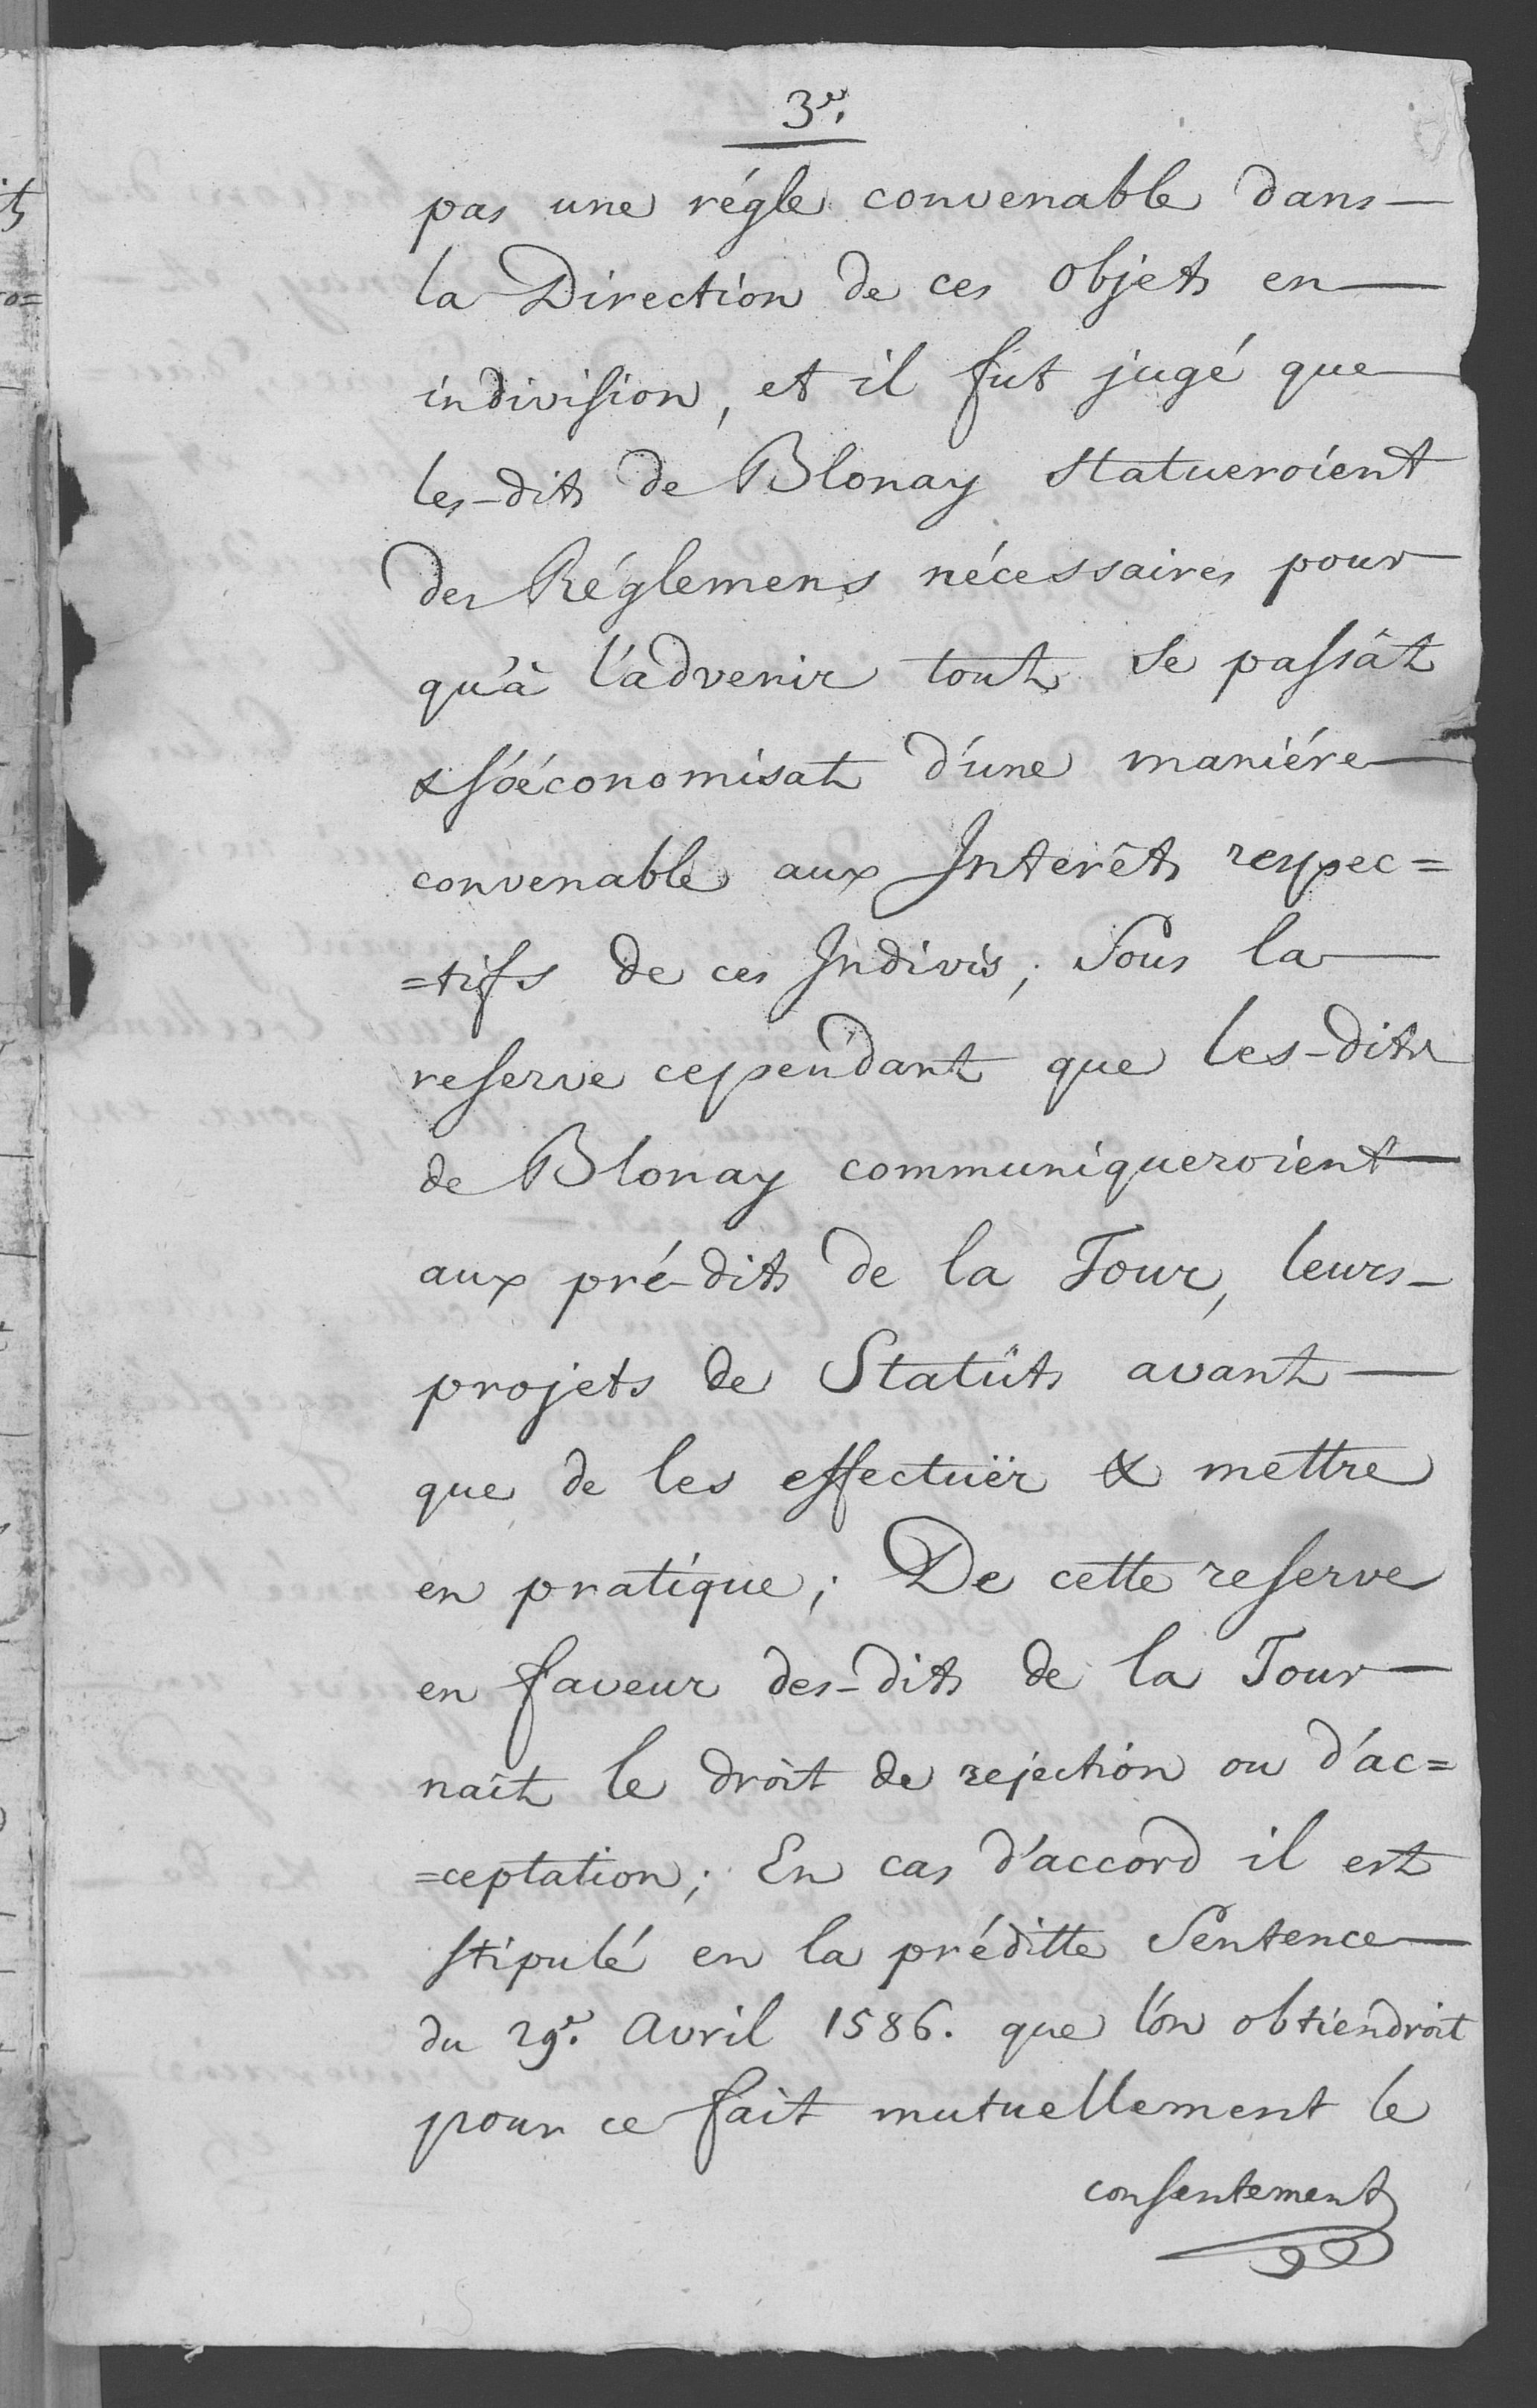 3e.
pas une régle convenable dans—
la Direction de ces objets en—
indivision, et il fut jugé que—
les-dits de Blonay statueroient
des Réglemens nécessaires pour
qu'à l'advenir tout se passât
& s'oéconomisat d'une maniére—
convenable aux Interêts respec=
=tifs de ces Indivis; Sous la—
reserve cependant que les-dits
de Blonay communiqueroient—
aux pré-dits de la Tour, leurs—
projets de Statuts avant—
que de les effectuër & mettre
en pratique; De cette reserve
en faveur des-dits de la Tour—
naît le droit de rejection ou d'ac=
=ceptation; En cas d'accord il est
stipulé en la préditte Sentence—
du 29e. Avril 1586. que l'on obtiendroit
pour ce fait mutuellement le
consentement